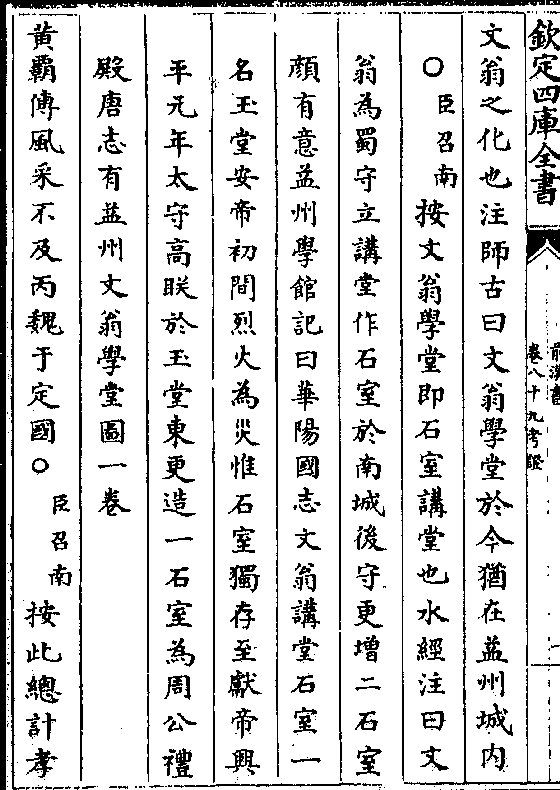 欽定四庫全書
前漢書
卷八十九考證
文翁之化也注師古曰文翁學堂於今猶在益州城内
○臣召南按文翁學堂即石室講堂也水經注曰文
翁為蜀守立講堂作石室於南城後守更增二石室
顔有意益州學館記曰華陽國志文翁講堂石室一
名玉堂安帝初間烈火為災惟石室獨存至獻帝興
平元年太守高䀕於玉堂東更造一石室為周公禮
殿唐志有益州文翁學堂圖一卷
黄霸傳風采不及丙魏于定國○臣召南按此總計孝